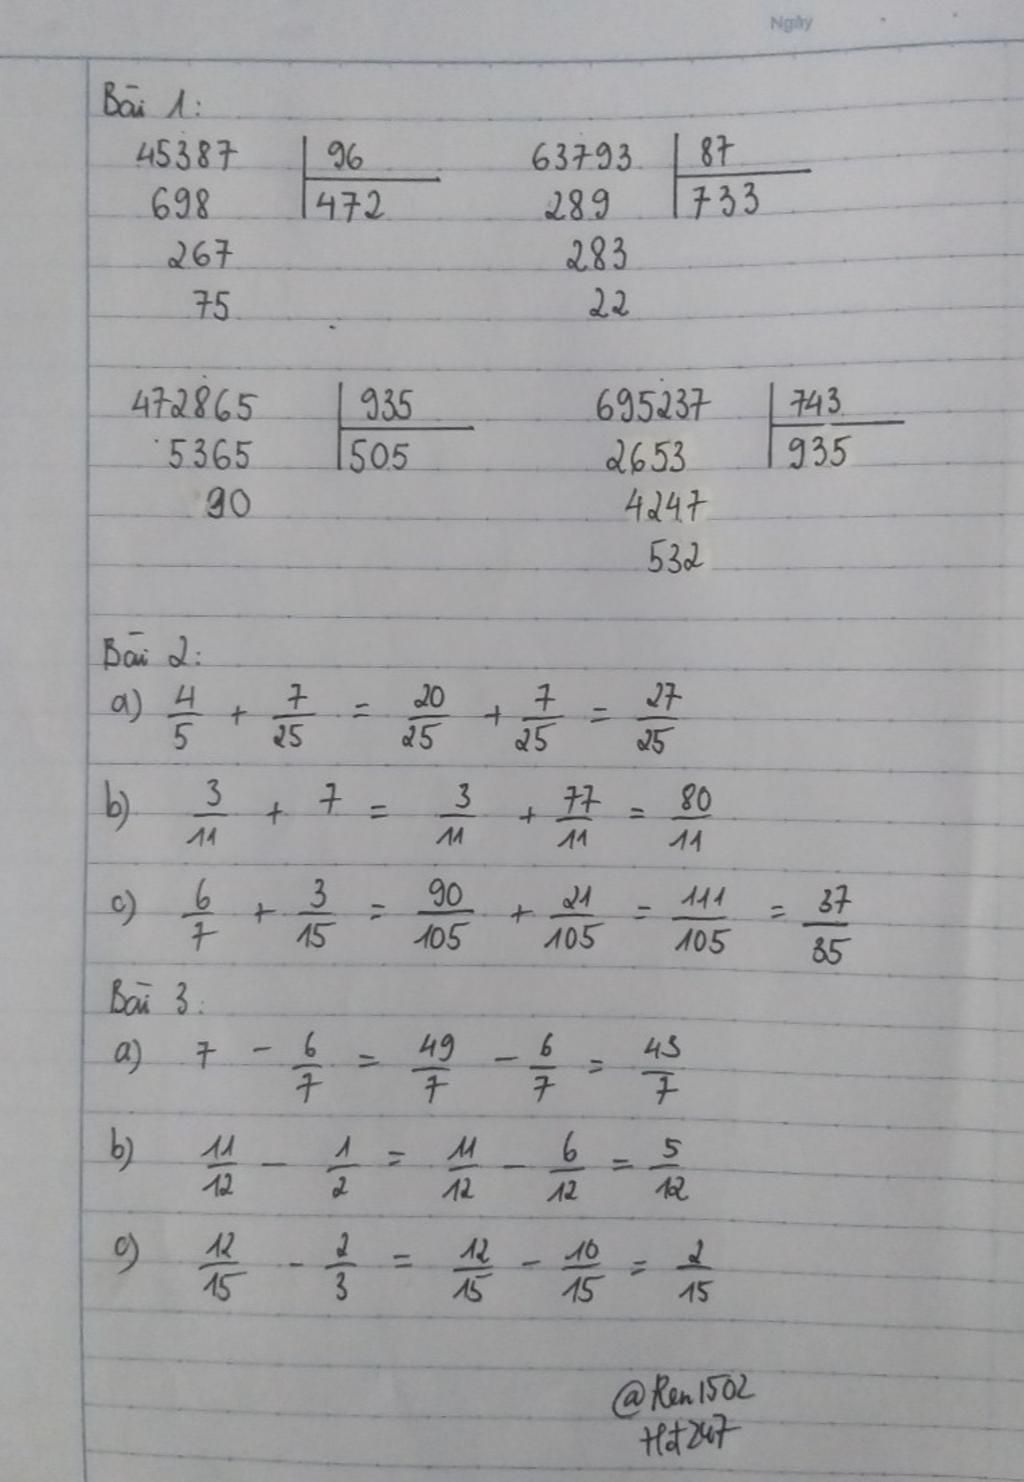 Ngày
Bài 1:
45387 96 63793 87
698 472 289 733
267 283
75 22
472865 935 695237 743
5365 505 2653 935
90 4247
532
Bài 2:
a) 4/5 + 7/25 = 20/25 + 7/25 = 27/25
b) 3/11 + 7 = 3/11 + 77/11 = 80/11
c) 6/7 + 3/15 = 90/105 + 21/105 = 111/105 = 37/35
Bài 3:
a) 7 - 6/7 = 49/7 - 6/7 = 43/7
b) 11/12 - 1/2 = 11/12 - 6/12 = 5/12
c) 12/15 - 2/3 = 12/15 - 10/15 = 2/15
@Ren1502